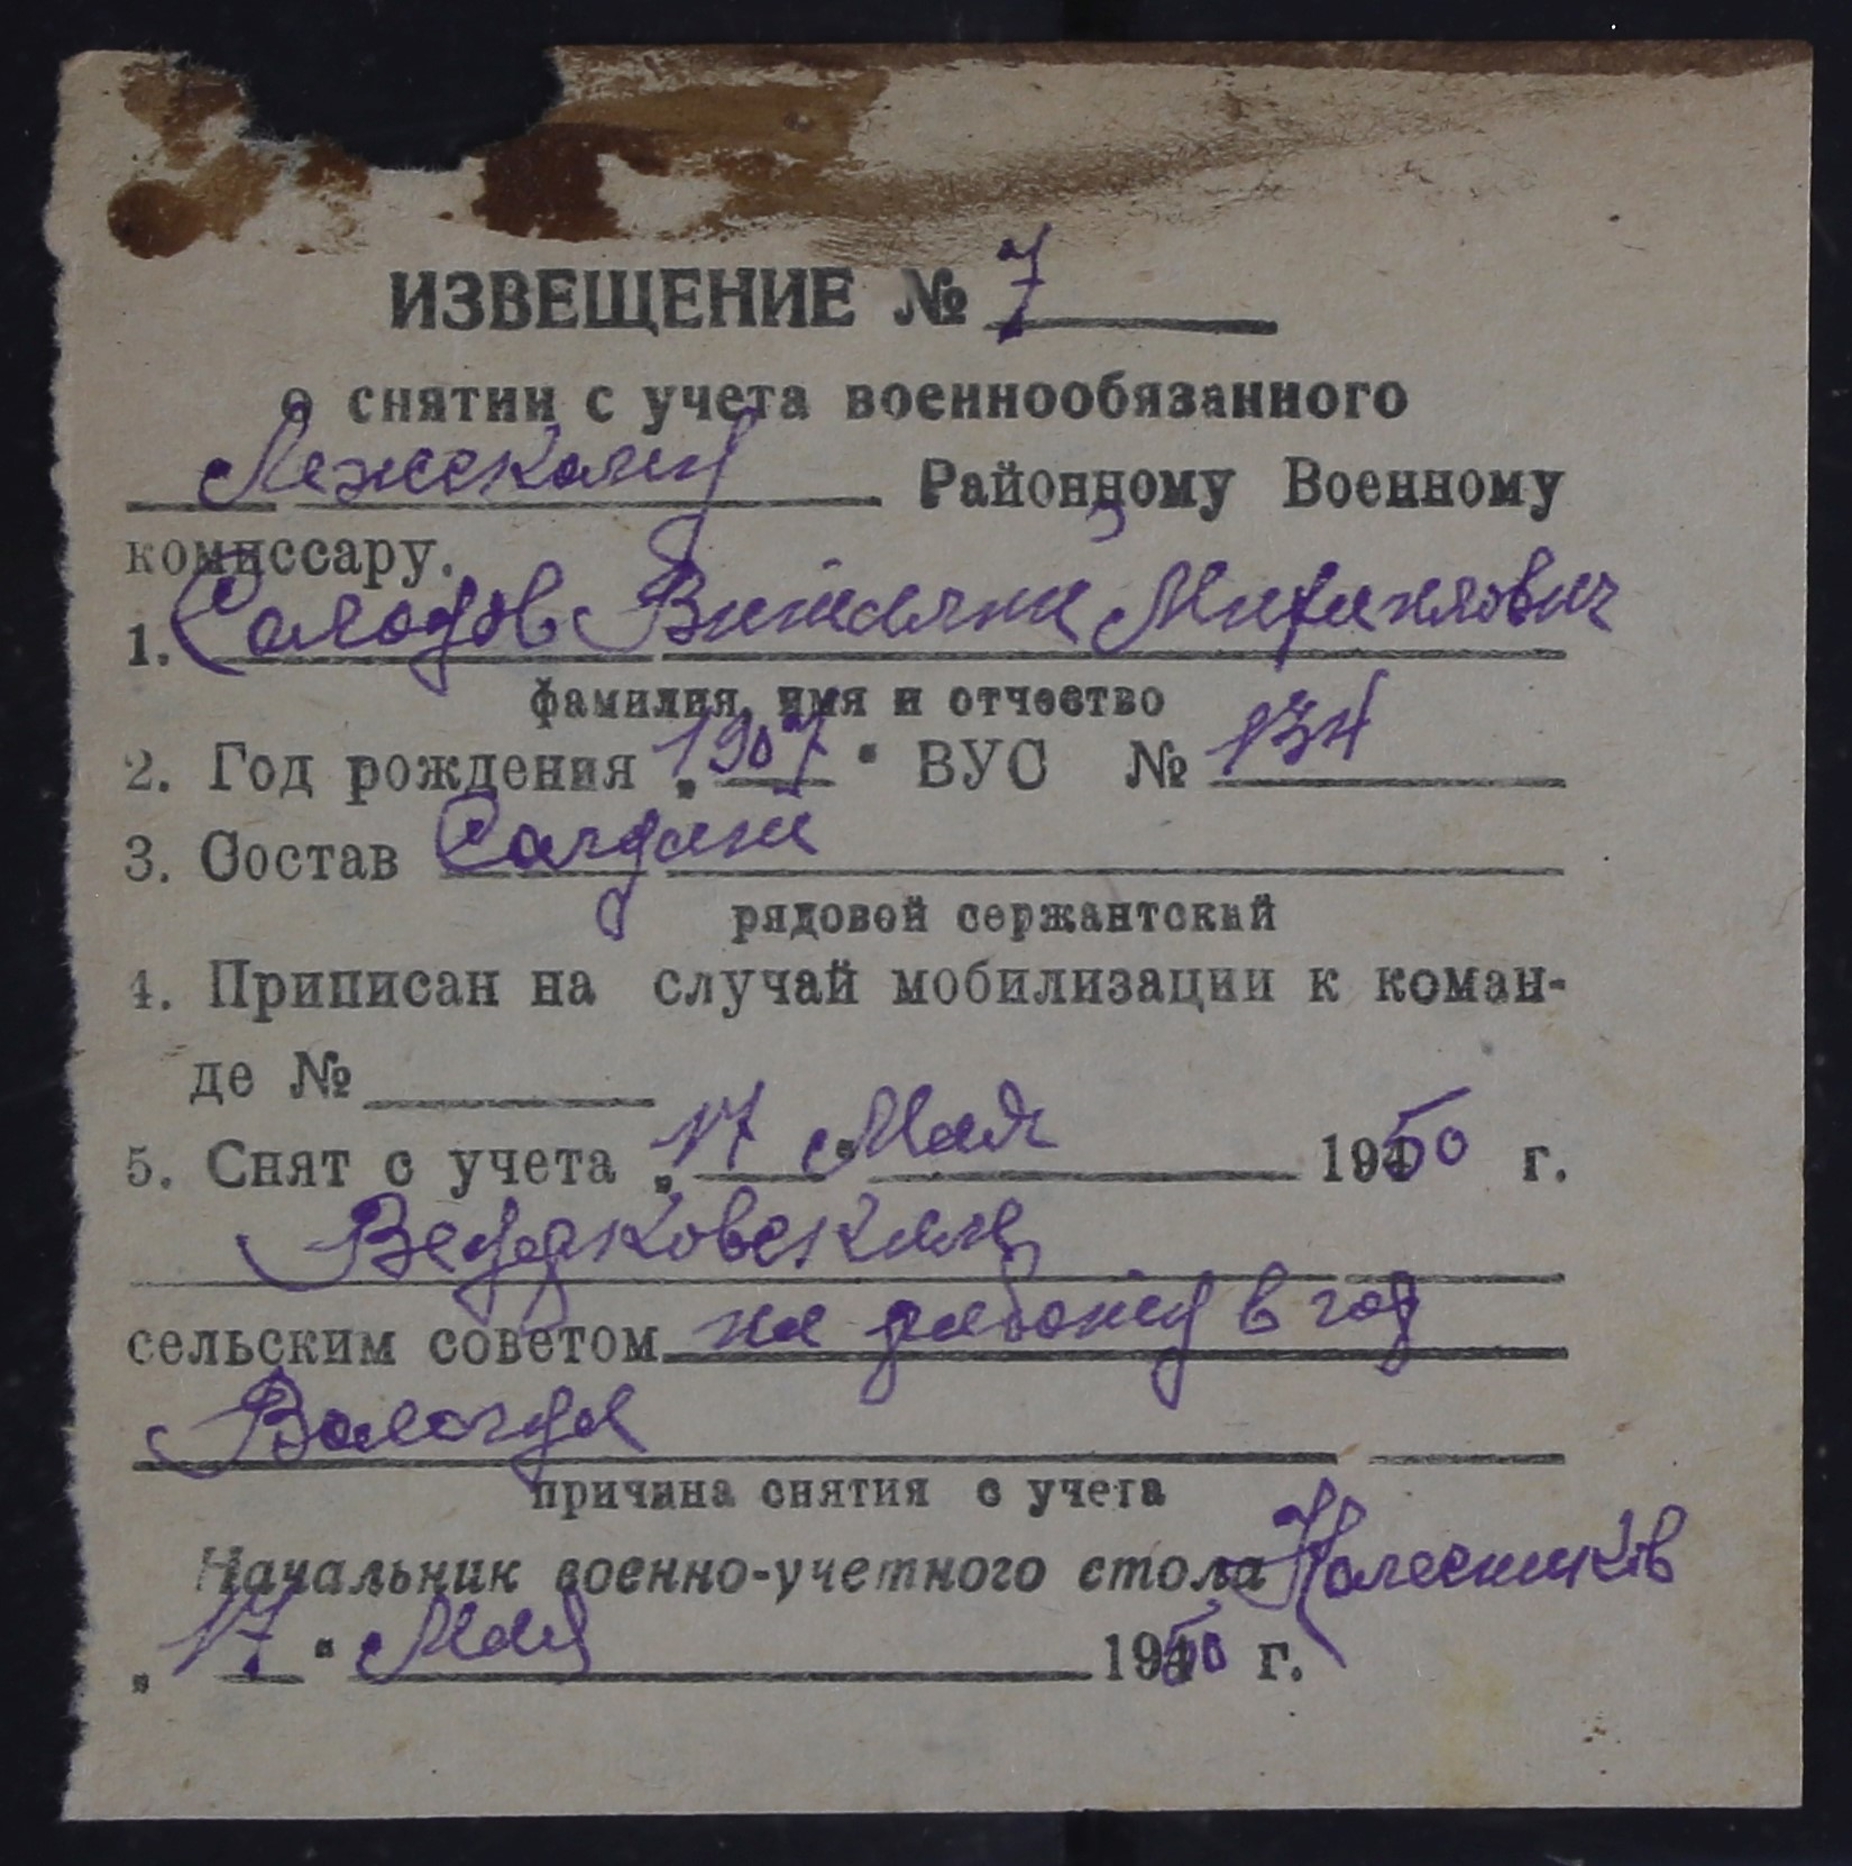 ИЗВЕЩЕНИЕ № 7
о снятии с учета военнообязанного
Лежскому Районному Военному
комиссару.
1. Солодов Виталий Михаилович
фамилия, имя и отчество
2. Год рождения „1907“ ВУС № 134
3. Состав Солдат
рядовой сержантский
4. Приписан на случай мобилизации к коман-
де №
5. Снят с учета „17“ Мая 1950 г.
сельским советом на работу в гор
Вологда
причина снятия с учета
Начальник военно-учетного стола Колесников
„17“ Мая 1950 г.